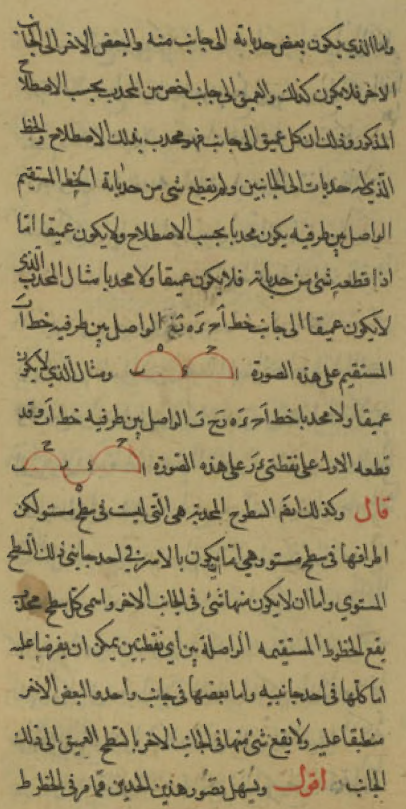 واما الذي يكون بعض حدباته الى جانب منه والبعض الاخر الى الجانب
الاخر فلا يكون كذلك والعميق الى جانب اخص من المحدب بحسب الاصطلاح
المذكور وذلك ان كل عميق الى جانب فهو محدب بذلك الاصطلاح والخط
الذي له حدبات الى الجانبين ولم يقطع شئ من حدباته الخط المستقيم
الواصل بين طرفيه يكون محدبا بحسب الاصطلاح ولا يكون عميقا اما
اذا قطعه شئ من حدباته فلا يكون عميقا ولا محدبا مثال المحدب الذي
لا يكون عميقا الى جانب خط ا ح الواصل بين طرفيه خط ا ب
المستقيم على هذه الصورة ومثال الذي لا يكون
عميقا ولا محدبا خط ا ح الواصل بين طرفيه خط ا ب وقد
قطعه الاول على نقطتي على هذه الصورة
قال وكذلك السطوح المحدبة هي التي ليست في سطح مستو لكن
اطرافها في سطح مستو وهي اما يكون بالاسر في احد جانبي ذلك السطح
المستوي واما ان لا يكون منها شئ في الجانب الاخر واسمى كل سطح محدب
يقع الخطوط المستقيمه الواصلة بين اي نقطتين يمكن ان يفرضا عليه
اما كلها في احد جانبيه واما بعضها في جانب واحد والبعض الاخر
منطبقا عليه ولا يقع شئ منها في الجانب الاخر بالسطح العميق الى ذلك
الجانب اقول ويسهل تصور هذين الحدين مما مر في الخطوط